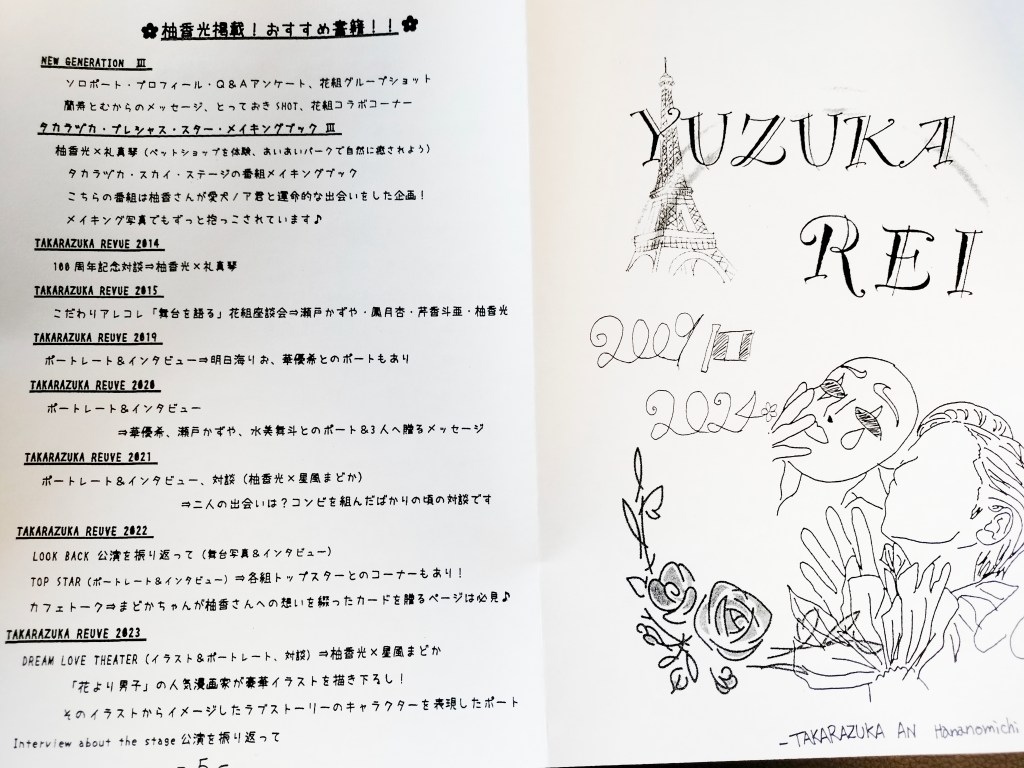 ✿柚香光掲載！おすすめ書籍！！✿
NEW GENERATION Ⅲ
ソロポート・プロフィール・Q&Aアンケート、花組グループショット
蘭寿とむからのメッセージ、とっておきSHOT、花組コラボコーナー
タカラヅカ・プレシャス・スター・メイキングブック Ⅲ
柚香光×礼真琴（ペットショップを体験、あいあいパークで自然に癒されよう）
タカラヅカ・スカイ・ステージの番組メイキングブック
こちらの番組は柚香さんが愛犬ノア君と運命的な出会いをした企画！
メイキング写真でもずっと抱っこされています♪
TAKARAZUKA REVUE 2014
100周年記念対談⇒柚香光×礼真琴
TAKARAZUKA REVUE 2015
こだわりアレコレ「舞台を語る」花組座談会⇒瀬戸かずや・鳳月杏・芹香斗亜・柚香光
TAKARAZUKA REUVE 2019
ポートレート＆インタビュー⇒明日海りお、華優希とのポートもあり
TAKARAZUKA REUVE 2020
ポートレート＆インタビュー
⇒華優希、瀬戸かずや、水美舞斗とのポート＆3人へ贈るメッセージ
TAKARAZUKA REUVE 2021
ポートレート＆インタビュー、対談（柚香光×星風まどか）
⇒二人の出会いは？コンビを組んだばかりの頃の対談です
TAKARAZUKA REUVE 2022
LOOK BACK 公演を振り返って（舞台写真＆インタビュー）
TOP STAR（ポートレート＆インタビュー）⇒各組トップスターとのコーナーもあり！
カフェトーク⇒まどかちゃんが柚香さんへの想いを綴ったカードを贈るページは必見♪
TAKARAZUKA REUVE 2023
DREAM LOVE THEATER（イラスト＆ポートレート、対談）⇒柚香光×星風まどか
「花より男子」の人気漫画家が豪華イラストを描き下ろし！
そのイラストからイメージしたラブストーリーのキャラクターを表現したポート
Interview about the stage 公演を振り返って
- 5 -
YUZUKA
REI
2009
2024
-TAKARAZUKA AN Hananomichi